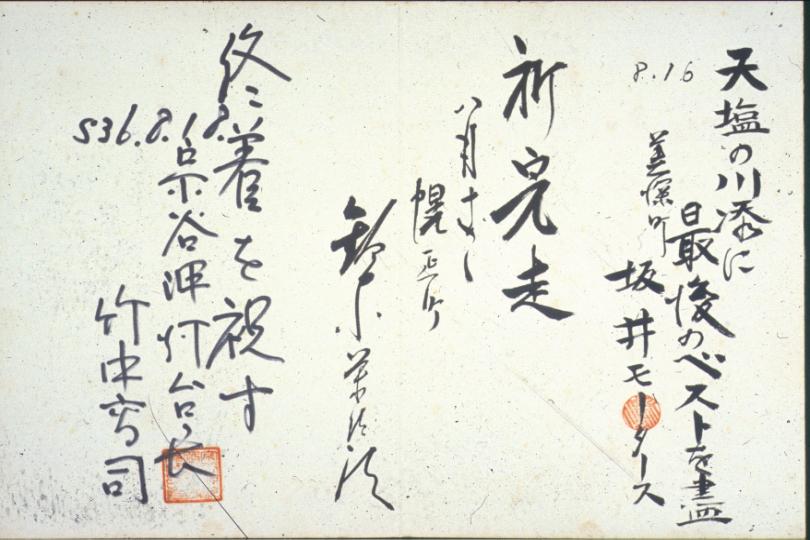 天塩の川添に
最後のベストを盡
8.16
美深町
坂井モータース
祈完走
八月
幌延町
終に着を祝す
S36.8.18.
宗谷岬灯台長
竹中
司